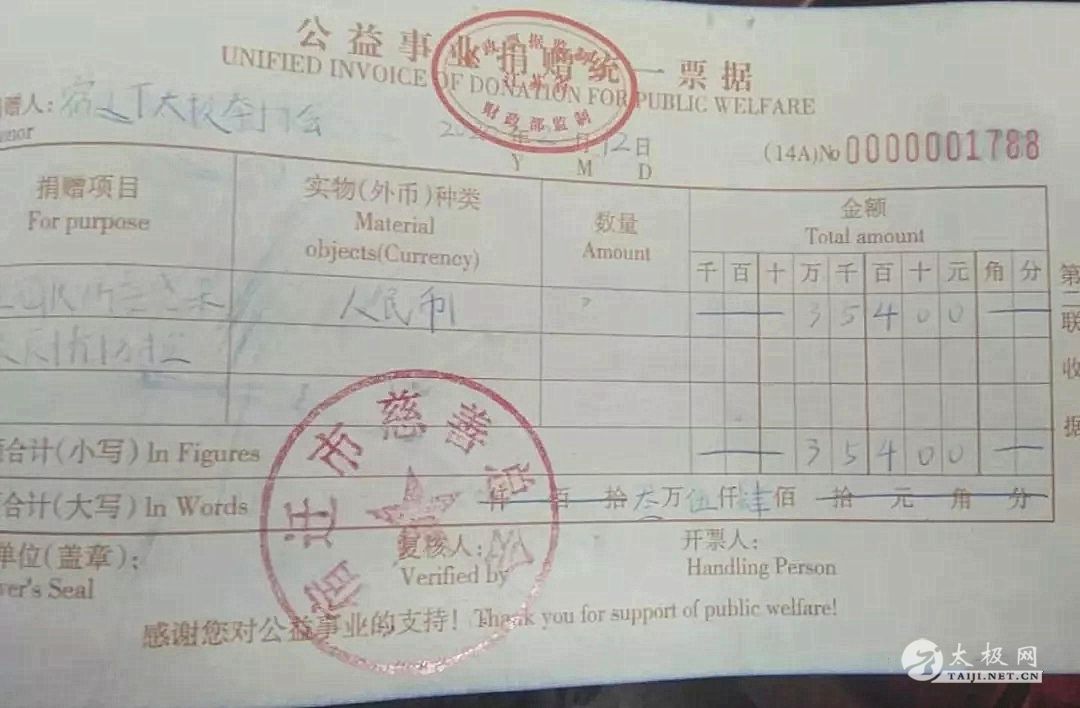 公益事业捐赠统一票据
UNIFIED INVOICE OF DONATION FOR PUBLIC WELFARE
财政部监制
赠人:宿迁市太极拳协会
nor
2020年 月12日
Y M D
(14A)No 0000001788
捐赠项目
For purpose
实物(外币)种类
Material
objects(Currency)
数量
Amount
金额
Total amount
千 百 十 万 千 百 十 元 角 分
人民币
3 5 4 0 0
合计(小写) In Figures
3 5 4 0 0
合计(大写) In Words
仟 佰 拾 叁万 伍仟 肆佰 拾 元 角 分
单位(盖章):
ver's Seal
复核人:
Verified by
开票人:
Handling Person
感谢您对公益事业的支持! Thank you for support of public welfare!
第二联 收据
宿迁市慈善
太极网
TAIJI.NET.CN